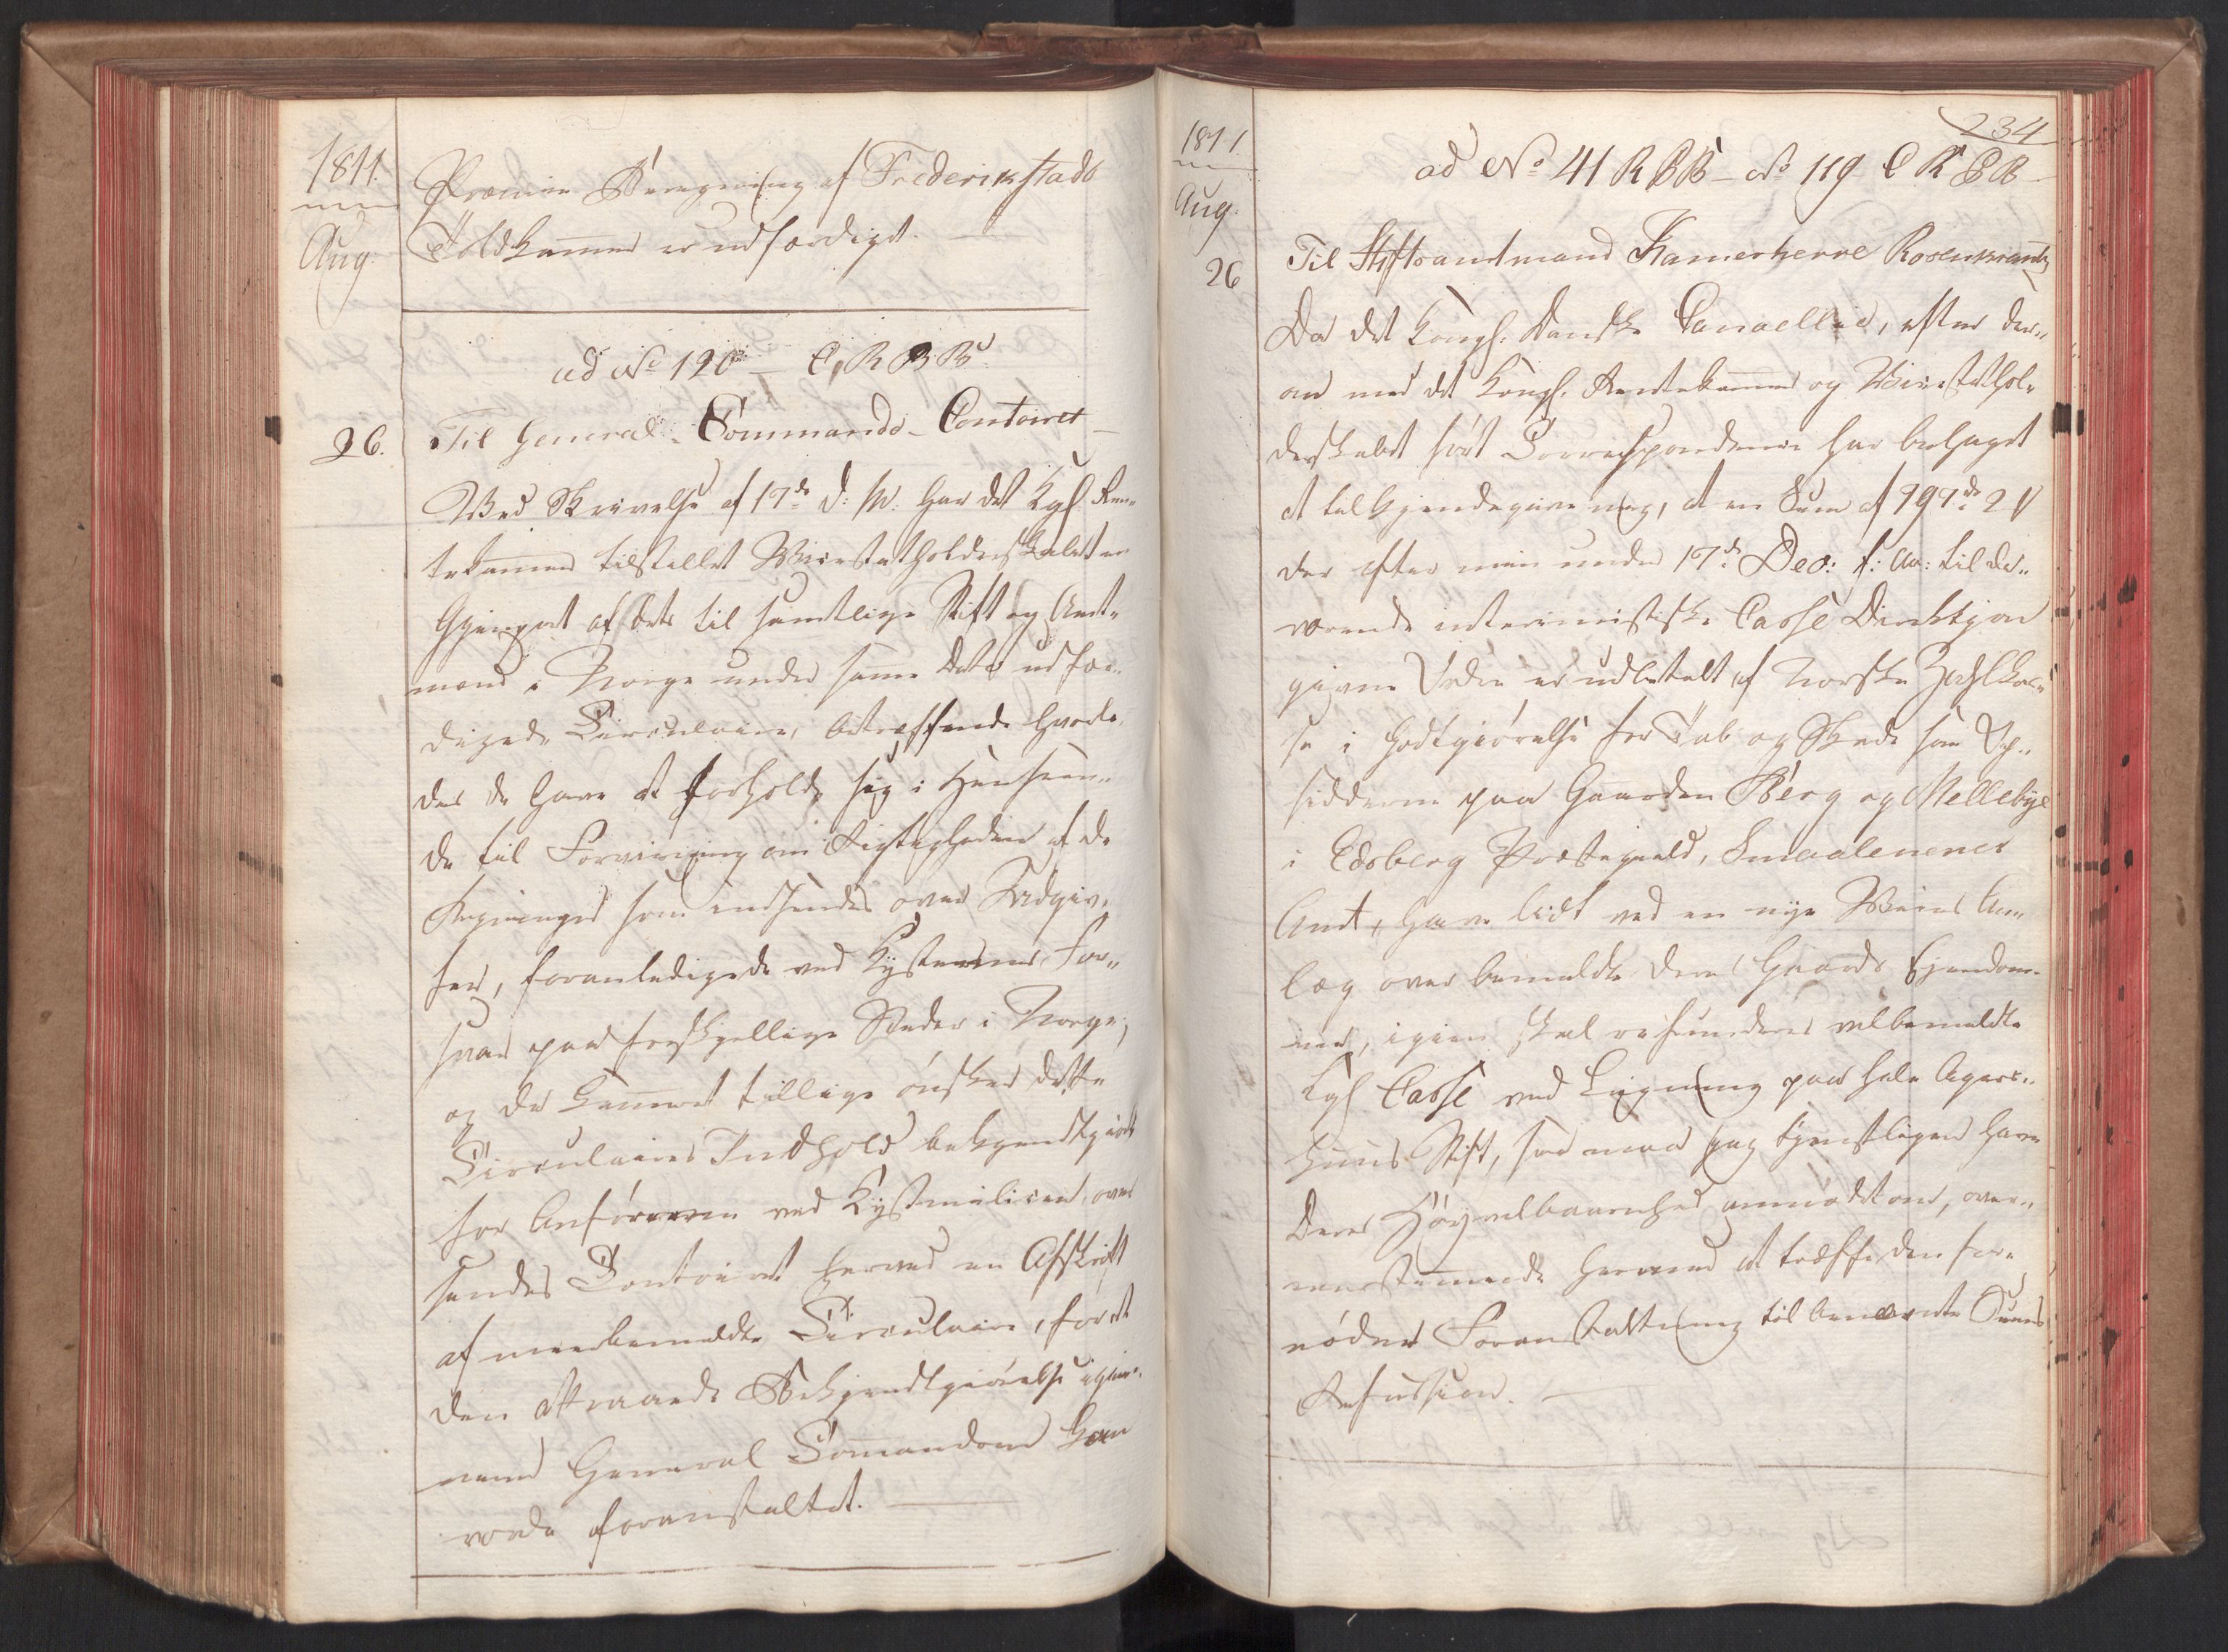 1811.
Aug.
Præmie Beregning af Frederikstads
Toldkammer er udfærdiget.
ad No 120 – C, R B B.
26.
Til General-Commando-Contoiret
Ved Skrivelse af 17de d: M: har det Kgl. Ren-
tekammer tilstillet Vicestatholderskabet en
Gjenpart af dets til samtlige Stift og Amt-
mænd i Norge under samme Dato udfær-
digede Circulaire, betræffende hvorle-
des de have at forholde sig i Henseen-
de til Forvisning om Rigtigheden af de
Regninger som indsendes over Udgiv-
ter, foranledigede ved Kysternes For-
svar paa forskjellige Steder i Norge,
og da Kammeret tillige ønsker dette
Circulaires Indhold bekjendtgiort
for Anførerne ved Kystmilicen, over
sendes Contoiret herved en Afskrift
af meerbemeldte Circulaire, for at
den attraaede Bekjendtgiørelse igien-
nem General Commandoen kan
vorde foranstaltet.
1811.
Aug.
26
234
ad No 41 R B B – No 119 C R B B
Til Stiftsamtmand Kamerherre Rosenkrantz
Da det Kongl. Danske Cancellie, efter der-
om med det Kongl. Rentekammer og Vicestathol-
derskabet ført Correspondence har behaget
at tilkjendegive mig, at en Sum af 797 rd 2 #
der efter min under 17de Dec: f: A: til da-
værende interimistiske Casse Direktion
givne Ordre er udbetalt af Norske Zahlkas-
se i Godtgiørelse for Tab og Skade som Op-
sidderne paa Gaarden Berg og Mellebye
i Edsberg Præstegield, Smaalenenes
Amt, have lidt ved en nye Veies An-
læg over bemeldte deres Gaards Eiendom-
me, igien skal refunderes velbemeldte
Kgl Casse ved Ligning paa hele Agers-
huus Stift, saa maa jeg tjenstligen have
Deres Høyvelbaarenhed anmodet om, over-
eensstemmende herved at træffe den for-
nødne Foranstaltning til benævnte Sums
Refussion.